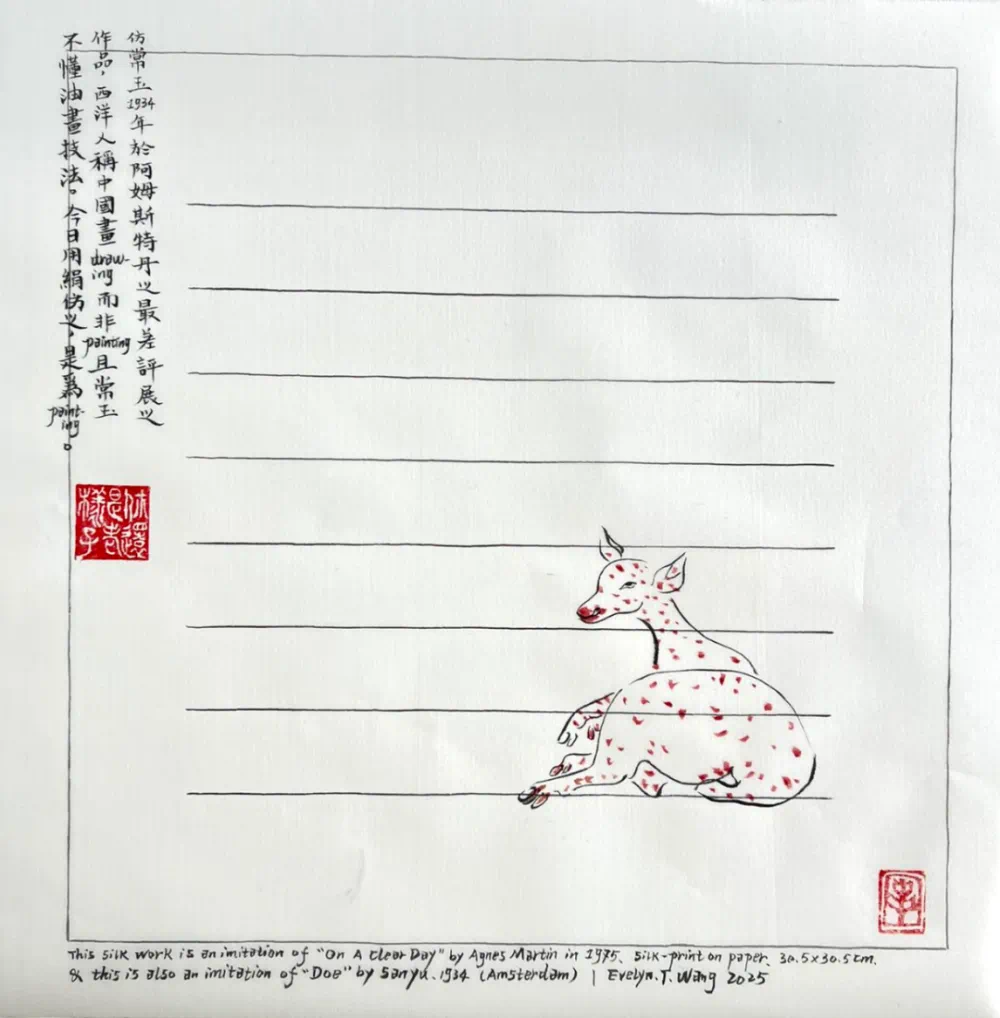 仿常玉1934年於阿姆斯特丹之最差評展之
作品，西洋人稱中國畫draw-ing而非painting且常玉
不懂油畫技法。今日用絹仿之，是爲paint-ing。
還
是老
樣子
This silk work is an imitation of "On A Clear Day" by Agnes Martin in 1975. Silk-print on paper. 30.5x30.5cm.
& this is also an imitation of "Doe" by Sanyu. 1934 (Amsterdam) | Evelyn.T.Wang 2025